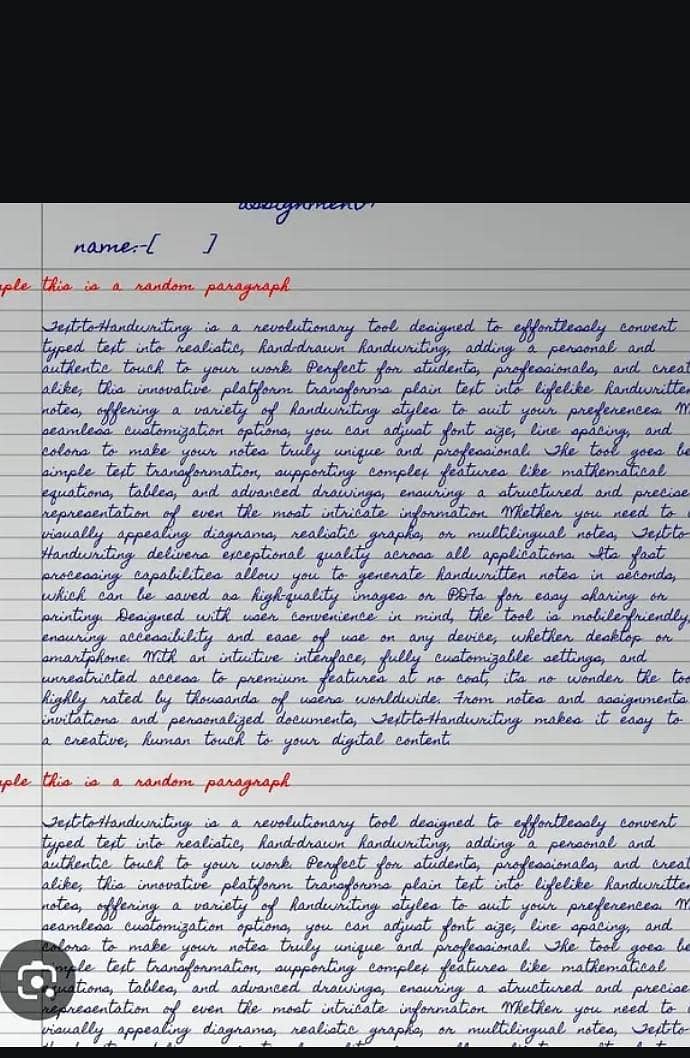 assignment:
name:-[ ]
ple this is a random paragraph
Text-to-Handwriting is a revolutionary tool designed to effortlessly convert
typed text into realistic, hand-drawn handwriting, adding a personal and
authentic touch to your work. Perfect for students, professionals, and creat
alike, this innovative platform transforms plain text into lifelike handwritte
notes, offering a variety of handwriting styles to suit your preferences.
seamless customization options, you can adjust font size, line spacing, and
colors to make your notes truly unique and professional. The tool goes be
simple text transformation, supporting complex features like mathematical
equations, tables, and advanced drawings, ensuring a structured and precise
representation of even the most intricate information. Whether you need to
visually appealing diagrams, realistic graphs, or multilingual notes, Text-to-
Handwriting delivers exceptional quality across all applications. Its fast
processing capabilities allow you to generate handwritten notes in seconds,
which can be saved as high-quality images or PDFs for easy sharing or
printing. Designed with user convenience in mind, the tool is mobile-friendly,
ensuring accessibility and ease of use on any device, whether desktop or
smartphone. With an intuitive interface, fully customizable settings, and
unrestricted access to premium features at no cost, it's no wonder the too
highly rated by thousands of users worldwide. From notes and assignments
invitations and personalized documents, Text-to-Handwriting makes it easy to
a creative, human touch to your digital content.
ple this is a random paragraph
Text-to-Handwriting is a revolutionary tool designed to effortlessly convert
typed text into realistic, hand-drawn handwriting, adding a personal and
authentic touch to your work. Perfect for students, professionals, and creat
alike, this innovative platform transforms plain text into lifelike handwritte
notes, offering a variety of handwriting styles to suit your preferences.
seamless customization options, you can adjust font size, line spacing, and
colors to make your notes truly unique and professional. The tool goes be
simple text transformation, supporting complex features like mathematical
equations, tables, and advanced drawings, ensuring a structured and precise
representation of even the most intricate information. Whether you need to
visually appealing diagrams, realistic graphs, or multilingual notes, Text-to-